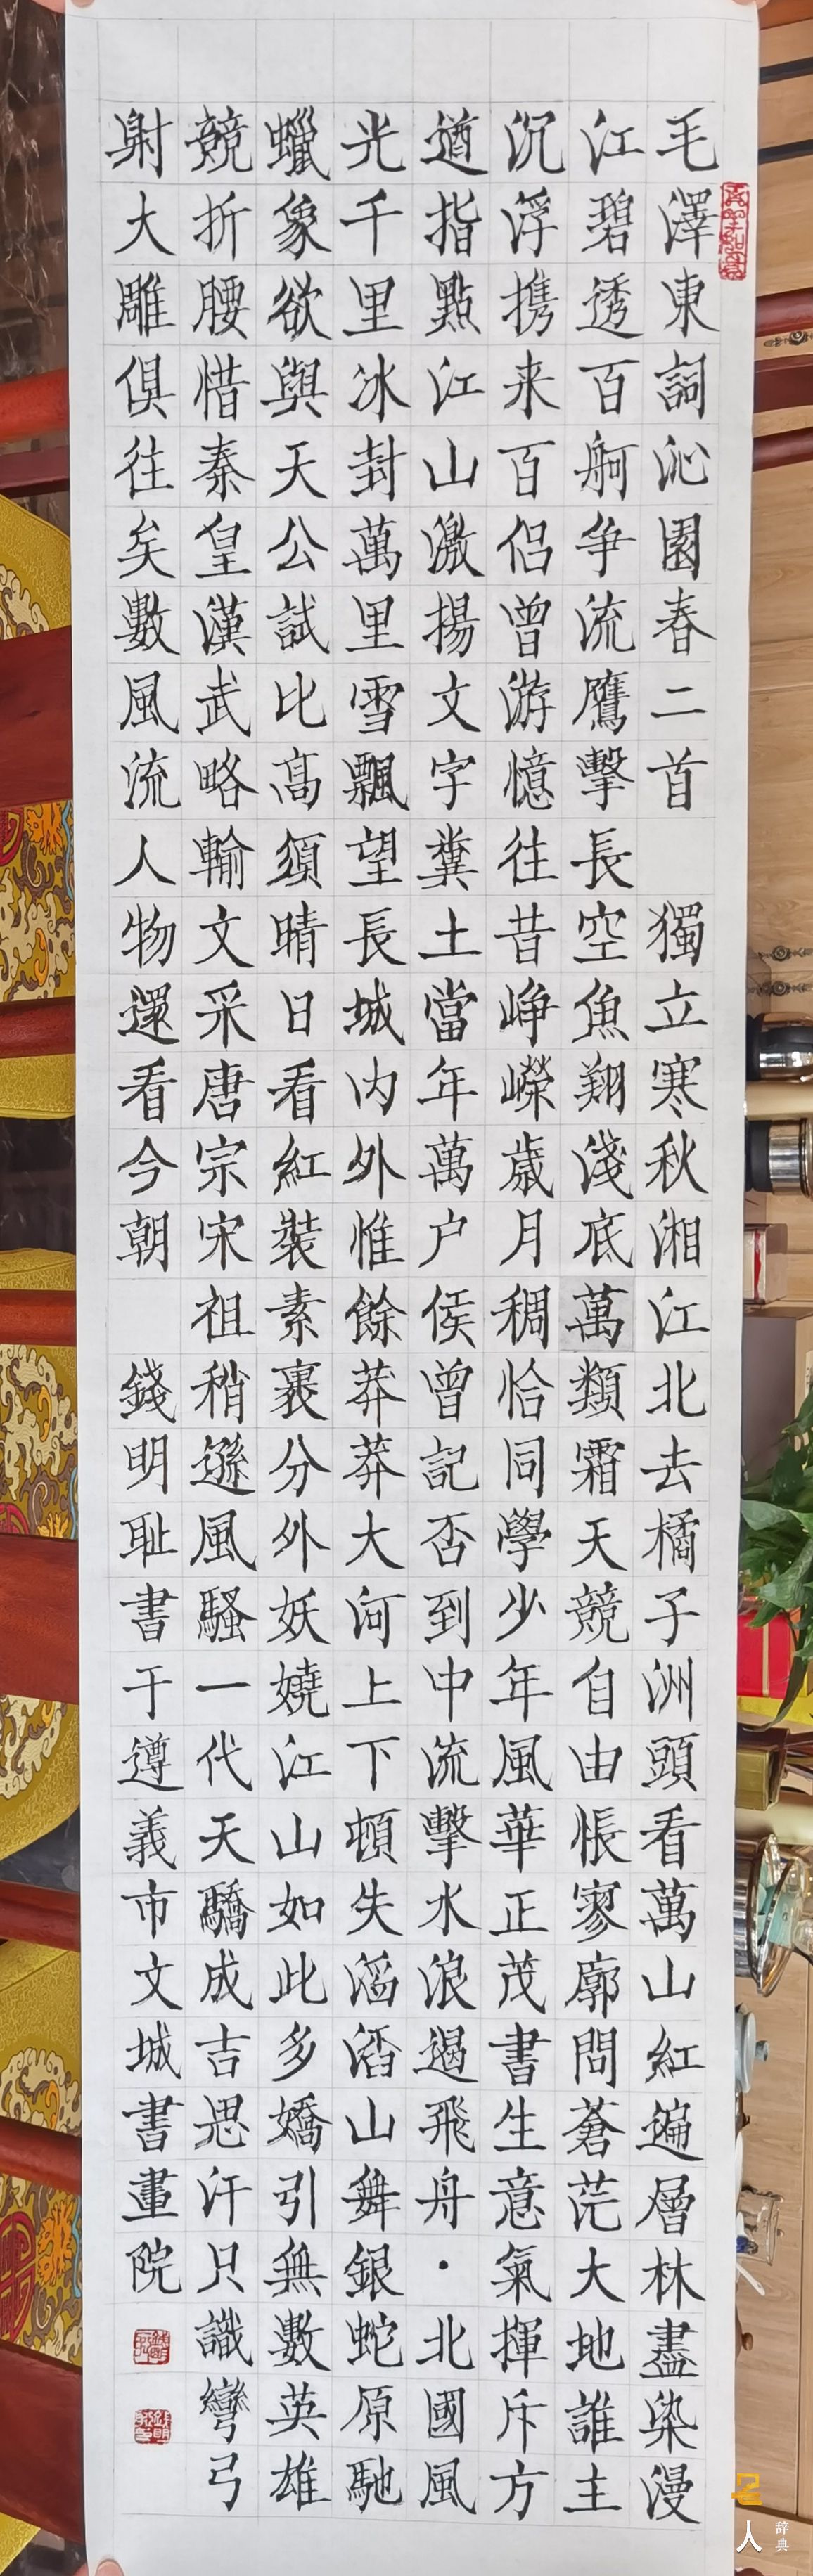 毛澤東詞沁園春二首　獨立寒秋湘江北去橘子洲頭看萬山紅遍層林盡染漫
江碧透百舸争流鷹擊長空魚翔淺底萬類霜天競自由悵寥廓問蒼茫大地誰主
沉浮携来百侣曾游憶往昔崢嶸歲月稠恰同學少年風華正茂書生意氣揮斥方
遒指點江山激揚文字糞土當年萬户侯曾記否到中流擊水浪遏飛舟·北國風
光千里冰封萬里雪飄望長城内外惟餘莽莽大河上下頓失滔滔山舞銀蛇原馳
蠟象欲與天公試比髙須晴日看紅裝素裹分外妖嬈江山如此多嬌引無數英雄
競折腰惜秦皇漢武略輸文采唐宗宋祖稍遜風騷一代天驕成吉思汗只識彎弓
射大雕俱往矣數風流人物還看今朝　錢明耻書于遵義市文城書畫院
名人辞典